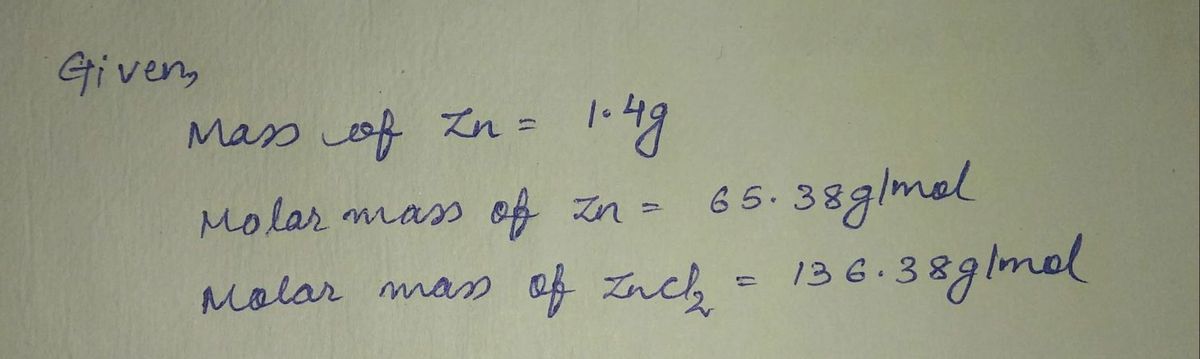 Given,
Mass of Zn = 1.4g
Molar mass of Zn = 65.38g/mol
Molar mass of ZnCl₂ = 136.38g/mol